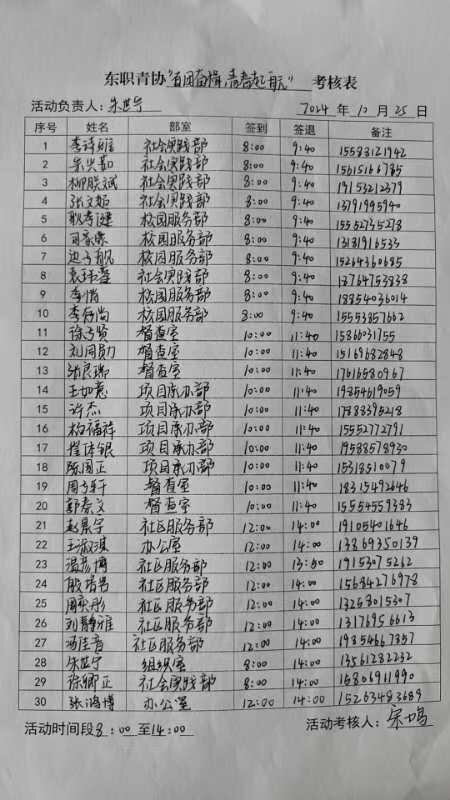 东职青协"百团奋楫,青春起航" 考核表
活动负责人: 朱世宁 2024 年 10 月 25 日
序号 姓名 部室 签到 签退 备注
1 李诗雅 社会实践部 8:00 9:40 15583121942
2 宗兴勤 社会实践部 8:00 9:40 15615166785
3 柳朕斌 社会实践部 8:00 9:40 19153212379
4 张文姬 社会实践部 8:00 9:40 13791995940
5 耿孝谜 校园服务部 8:00 9:40 15552735278
6 司豪豪 校园服务部 8:00 9:40 13181916533
7 迟子凯 校园服务部 8:00 9:40 15264360685
8 袁玮蔓 社会实践部 8:00 9:40 18764753838
9 李惜 校园服务部 8:00 9:40 18854036014
10 李舒尚 校园服务部 8:00 9:40 15553857662
11 徐子贤 督查室 10:00 11:40 15866031755
12 刘同勋 督查室 10:00 11:40 15169682848
13 张良瑞 督查室 10:00 11:40 17616580967
14 王如意 项目承办部 10:00 11:40 19854619059
15 许杰 项目承办部 10:00 11:40 17888395218
16 杨福祥 项目承办部 10:00 11:40 15552772791
17 崔体银 项目承办部 10:00 11:40 19588578930
18 陈国正 项目承办部 10:00 11:40 15318510079
19 周子轩 督查室 10:00 11:40 18315492646
20 郭泰文 督查室 10:00 11:40 15554559383
21 赵景宇 社区服务部 12:00 14:00 19105401646
22 王淑淇 办公室 12:00 14:00 13869350139
23 温彦博 社区服务部 12:00 13:50 19153075262
24 殷培喆 社区服务部 12:00 14:00 15684276978
25 周奕彤 社区服务部 12:00 14:00 13258015307
26 刘静雅 社区服务部 12:00 14:00 13176956613
27 冯佳音 社区服务部 12:00 14:00 19854667857
28 朱世宁 组织室 8:00 14:00 13561282232
29 徐卿正 社会实践部 8:00 14:00 15806911990
30 张鸿博 办公室 12:00 14:00 15263483689
活动时间段8:00至14:00 活动考核人: